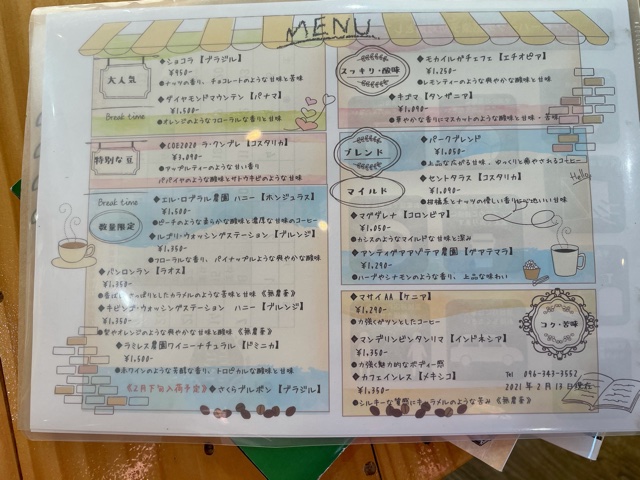 MENU
大人気
◆ショコラ【ブラジル】
¥950-
●ナッツの香り、チョコレートのような甘味と苦味
◆ダイヤモンドマウンテン【パナマ】
¥1,500-
●オレンジのようなフローラルな香りと甘味
Break time
特別な豆
◆COE2020 ラ・ウンブレ【コスタリカ】
¥3,090-
●アップルティーのような甘い香り
パパイヤのような酸味とサトウキビのような甘味
Break time
数量限定
◆エル・ロブラル農園 ハニー【ホンジュラス】
¥1,500-
●ピーチのような柔らかな酸味と濃厚な甘味のコーヒー
◆ルブリ・ウォッシングステーション【ブルンジ】
¥1,350-
●フローラルな香り、パイナップルような爽やかな酸味
◆バンロンラン【ラオス】
¥1,350-
◆キビンゴ・ウォッシングステーション ハニー【ブルンジ】
¥1,350-
●梨やオレンジのような爽やかな甘味と酸味《無農薬》
◆ラミレス農園ワイニーナチュラル【ドミニカ】
¥1,500-
●赤ワインのような芳醇な香り、トロピカルな酸味と甘味
《2月下旬入荷予定》◆さくらブルボン【ブラジル】
スッキリ・酸味
◆モカイルガチェフェ【エチオピア】
¥1,250-
●レモンティーのような爽やかな酸味と甘味
◆キゴマ【タンザニア】
¥1,090-
●華やかな香りにマスカットのような酸味と甘味・苦味
ブレンド
◆パークブレンド
¥1,050-
●上品な広がる甘味、ゆっくりと癒やされるコーヒー
マイルド
◆セントタラス【コスタリカ】
¥1,090-
●柑橘系とナッツの優しい香りに心地いい甘味
Hello
◆マグダレナ【コロンビア】
¥1,050-
●カシスのようなマイルドな甘味と深み
◆アンティグアアゾテア農園【グアテマラ】
¥1,290-
●ハーブやシナモンのような香り、上品な味わい
コク・苦味
◆マサイAA【ケニア】
¥1,290-
●力強くガツンとしたコーヒー
◆マンデリンビンタンリマ【インドネシア】
¥1,350-
●力強く魅力的なボディー感
◆カフェインレス【メキシコ】
¥1,350-
●シルキーな質感にキャラメルのような苦み《無農薬》
Tel 096-343-3552
2021年2月13日現在